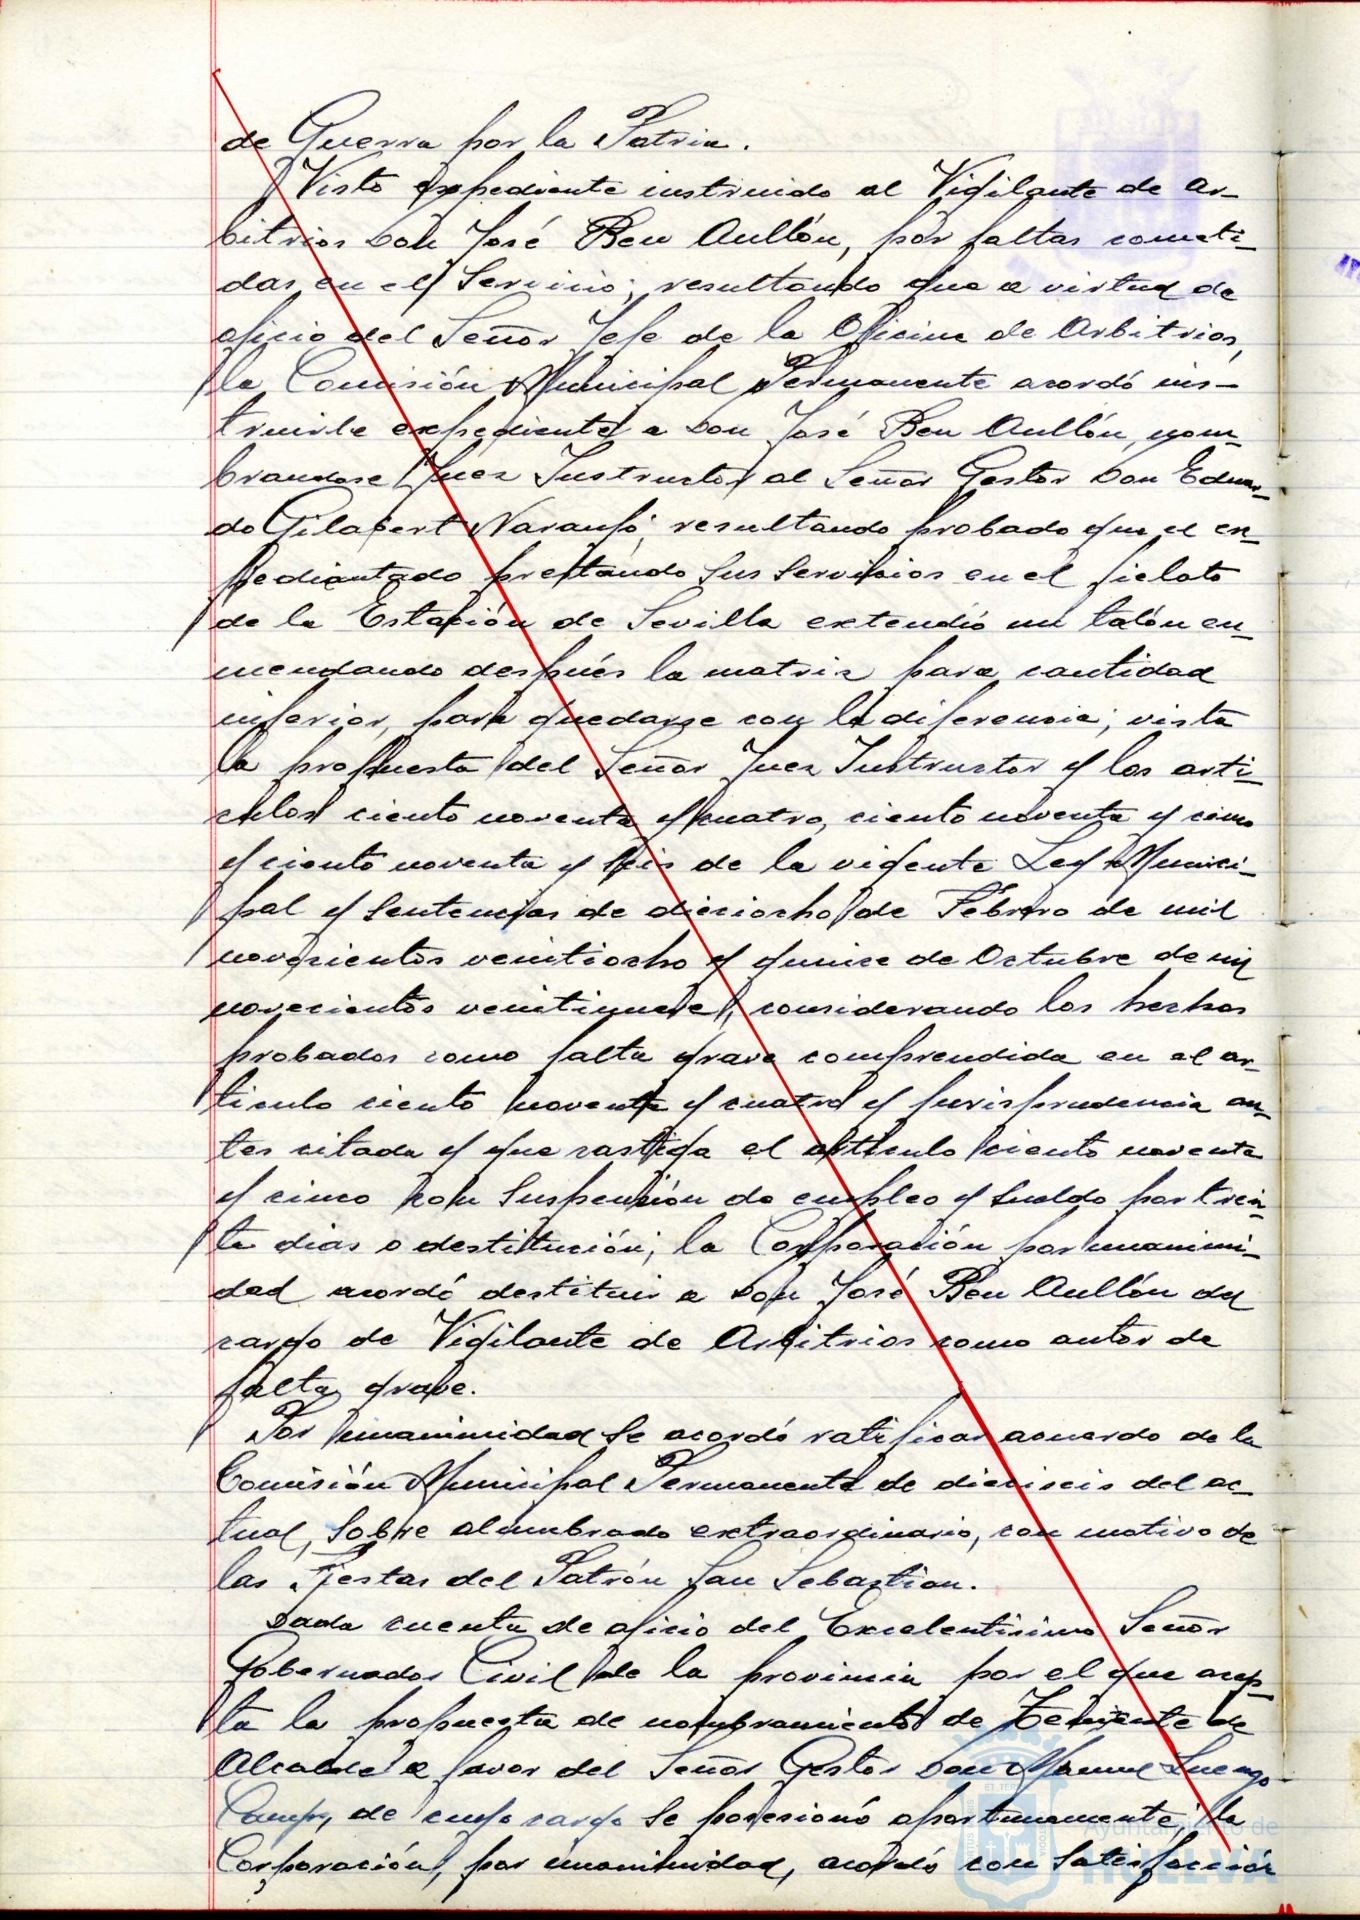 de Guerra por la Patria.
Visto expediente instruido al Vigilante de ar-
bitrios Don José Beu Aullón, por faltas cometi-
das en el Servicio; resultando que a virtud de
oficio del Señor Jefe de la Oficina de Arbitrios,
la Comisión Municipal Permanente acordó ins-
truirle expediente a Don José Beu Aullón, nom-
brandose Juez Instructor al Señor Gestor Don Eduar-
do Gilabert Naranjo; resultando probado que el ex-
pedientado prestando sus servicios en el fielato
de la Estación de Sevilla extendió un talón en-
mendando después la matriz para cantidad
inferior, para quedarse con la diferencia; vista
la propuesta del Señor Juez Instructor y los arti-
culos ciento noventa y cuatro, ciento noventa y cinco
y ciento noventa y seis de la vigente Ley Munici-
pal y Sentencias de dieciocho de Febrero de mil
novecientos veintiocho y quince de Octubre de mil
novecientos veintinueve; considerando los hechos
probados como falta grave comprendida en el ar-
ticulo ciento noventa y cuatro y jurisprudencia an-
tes citada y que castiga el articulo ciento noventa
y cinco con Suspensión de empleo y Sueldo por trein-
ta dias o destitución; la Corporación por unanimi-
dad acordó destituir a Don José Beu Aullón del
cargo de Vigilante de Arbitrios como autor de
falta grave.
Por unanimidad se acordó ratificar acuerdo de la
Comisión Municipal Permanente de dieciseis del ac-
tual, sobre alumbrado extraordinario, con motivo de
las Fiestas del Patrón San Sebastian.
Dada cuenta de oficio del Excelentisimo Señor
Gobernador Civil de la provincia por el que acep-
ta la propuesta de nombramiento de Teniente de
Alcalde a favor del Señor Gestor Don Manuel Luengo
de cuyo cargo se posesionó oportunamente; la
Corporación, por unanimidad, acordó con Satisfacción
Ayuntamiento de
HUELVA